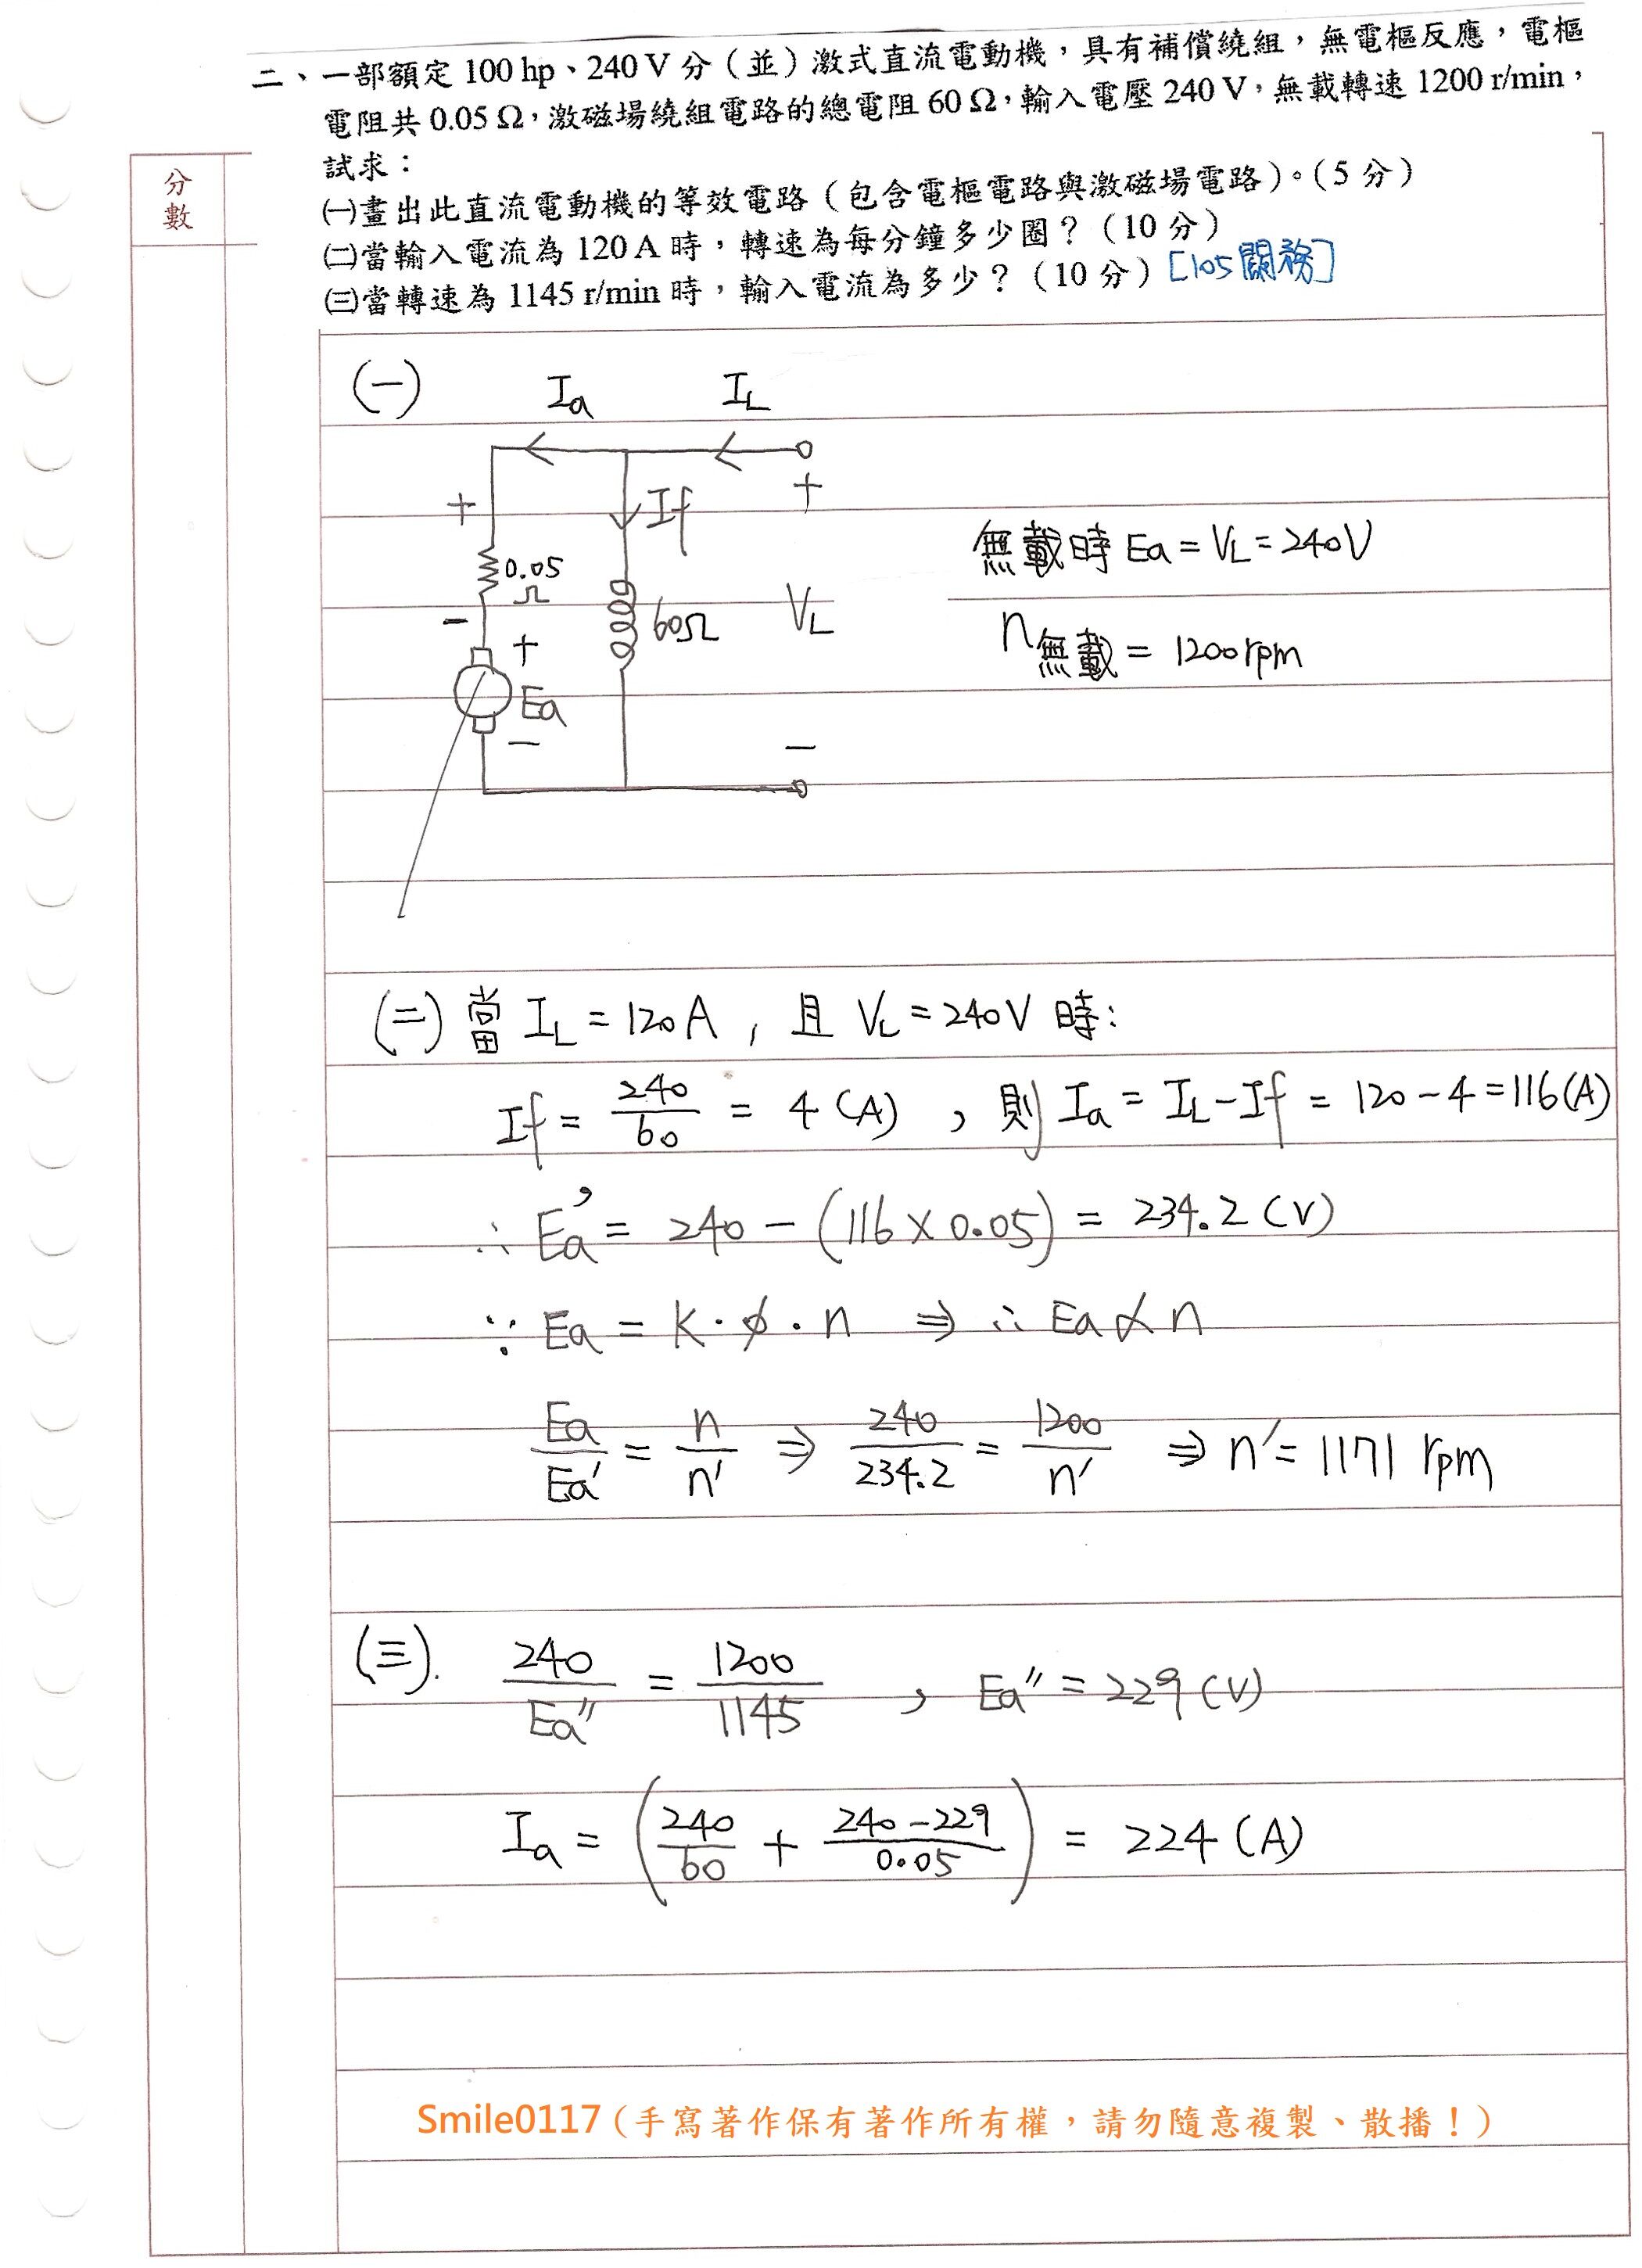 二、一部額定 100 hp、240 V 分（並）激式直流電動機，具有補償繞組，無電樞反應，電樞
電阻共 0.05 Ω，激磁場繞組電路的總電阻 60 Ω，輸入電壓 240 V，無載轉速 1200 r/min，
試求：
㈠畫出此直流電動機的等效電路（包含電樞電路與激磁場電路）。（5 分）
㈡當輸入電流為 120 A 時，轉速為每分鐘多少圈？（10 分）
㈢當轉速為 1145 r/min 時，輸入電流為多少？（10 分）[105關務]
分
數
(一)
Ia
IL
+
If
+
0.05
Ω
60Ω
VL
-
+
Ea
-
-
無載時 Ea = VL = 240V
n無載 = 1200rpm
(二) 當 IL = 120A , 且 VL = 240V 時:
If = 240/60 = 4 (A) , 則 Ia = IL - If = 120 - 4 = 116(A)
∴ Ea' = 240 - (116 × 0.05) = 234.2 (V)
∵ Ea = K·φ·n ⇒ ∴ Ea ∝ n
Ea/Ea' = n/n' ⇒ 240/234.2 = 1200/n' ⇒ n' = 1171 rpm
(三). 240/Ea" = 1200/1145 , Ea" = 229 (V)
Ia = (240/60 + 240-229/0.05) = 224 (A)
Smile0117 (手寫著作保有著作所有權，請勿隨意複製、散播！)